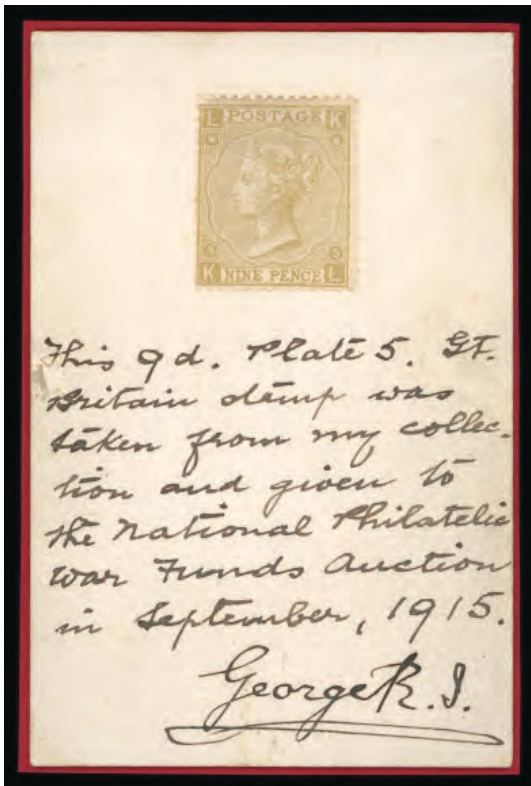 L POSTAGE K
K NINE PENCE L
This 9d. Plate 5. Gt.
Britain stamp was
taken from my collec-
tion and given to
the National Philatelic
War Funds Auction
in September, 1915.
George R. I.